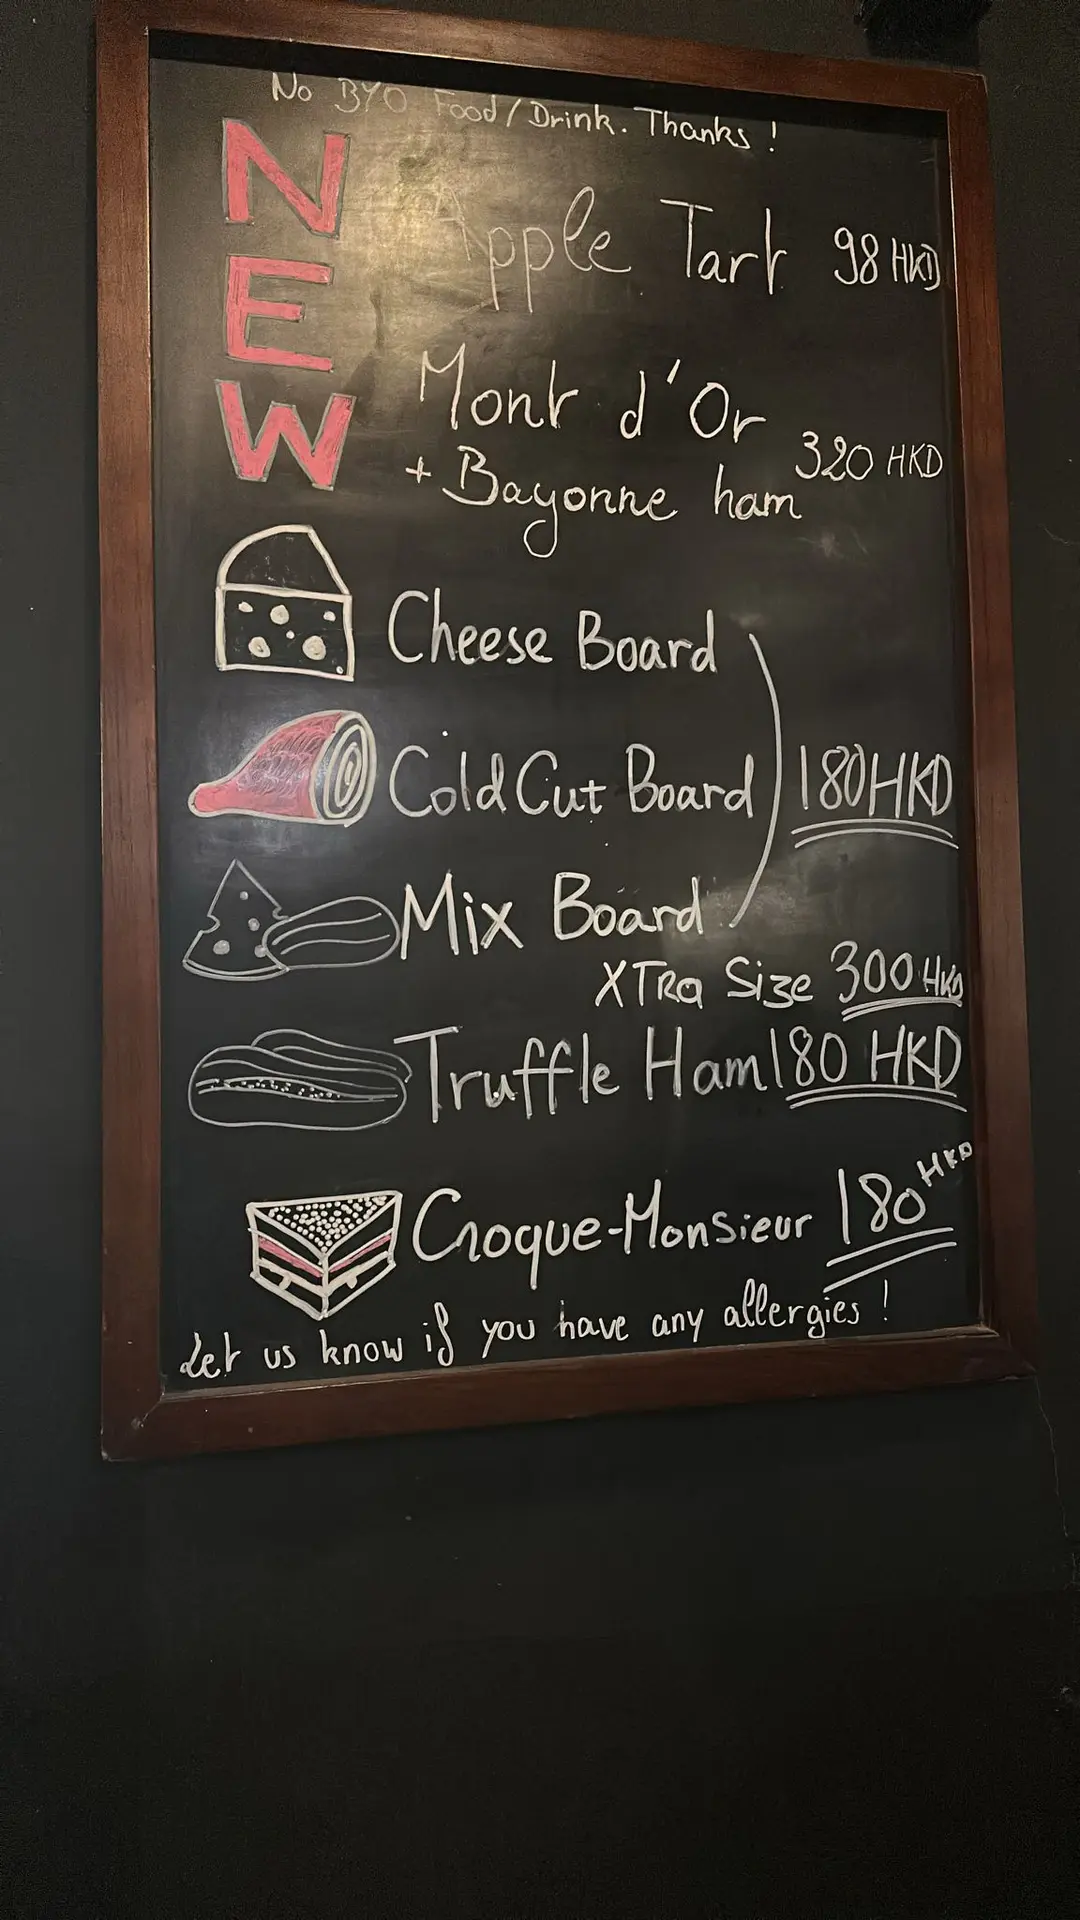 No BYO Food/Drink. Thanks!
NEW
Apple Tart 98 HKD
Mont d'Or
+ Bayonne ham 320 HKD
Cheese Board
Cold Cut Board 180HKD
Mix Board
XTRa Size 300 HKD
Truffle Ham 180 HKD
Croque-Monsieur 180 HKD
Let us know if you have any allergies!